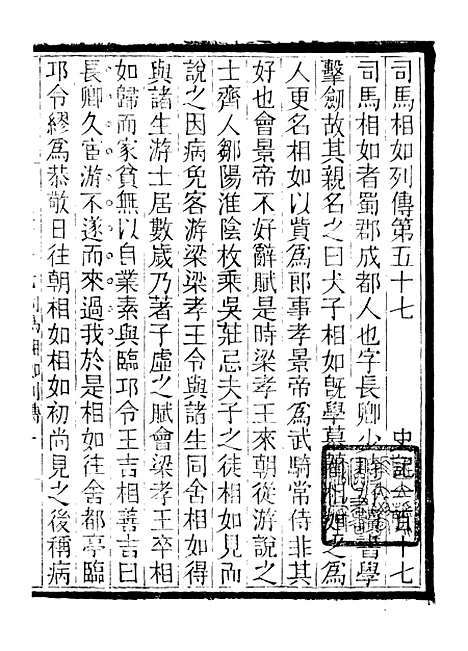 司馬相如列傳第五十七 史記一百十七
司馬相如者蜀郡成都人也字長卿少時好讀書學
擊劍故其親名之曰犬子相如旣學慕藺相如之爲
人更名相如以貲爲郎事孝景帝爲武騎常侍非其
好也會景帝不好辭賦是時梁孝王來朝從游說之
士齊人鄒陽淮陰枚乗吳莊忌夫子之徒相如見而
說之因病免客游梁梁孝王令與諸生同舍相如得
與諸生游士居數歲乃著子虛之賦會梁孝王卒相
如歸而家貧無以自業素與臨邛令王吉相善吉曰
長卿久宦游不遂而來過我於是相如往舍都亭臨
邛令繆爲恭敬日往朝相如相如初尚見之後稱病